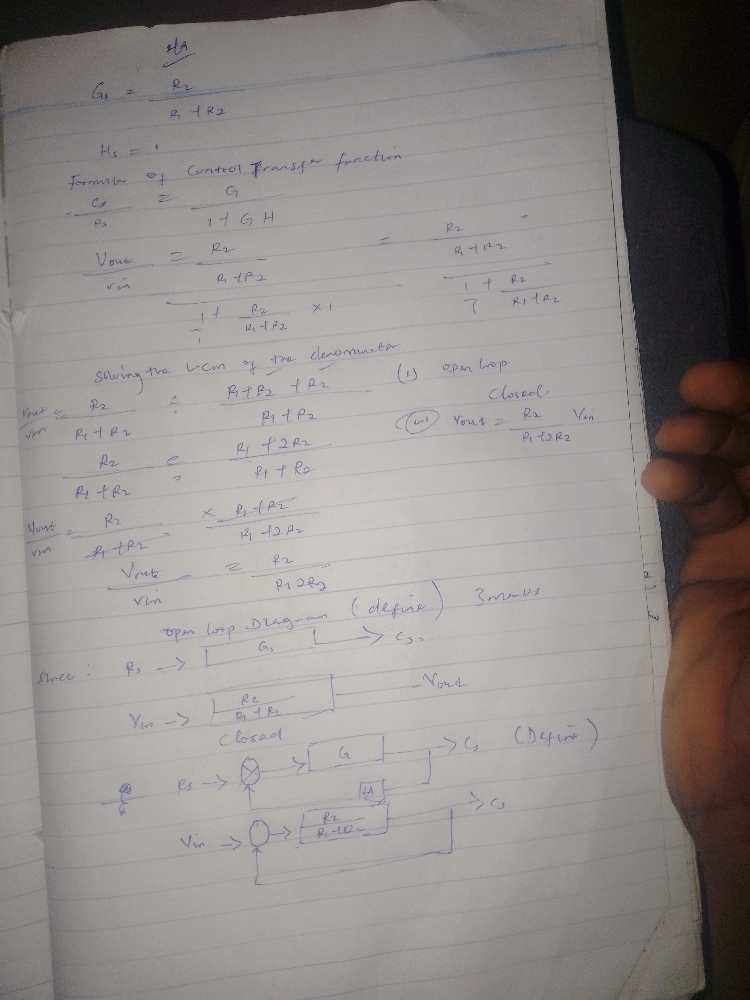 G₁ = R₂ / R₁ + R₂
Hs = 1
Formula of Control Transfer function
Cs / Rs = G / 1 + G H
Vout / Vin = R₂ / R₁ + R₂ / 1/1 + R₂ / R₁ + R₂ × 1 = R₂ / R₁ + R₂ / 1/1 + R₂ / R₁ + R₂
Solving the LCM of the denominator
Vout / Vin = R₂ / R₁ + R₂ ÷ R₁ + R₂ + R₂ / R₁ + R₂ (i) open loop
Closed
R₂ / R₁ + R₂ ÷ R₁ + 2R₂ / R₁ + R₂ Vout = R₂ / R₁ + 2R₂ Vin
Vout / Vin = R₂ / R₁ + R₂ × R₁ + R₂ / R₁ + 2R₂
Vout / Vin = R₂ / R₁ 2R₂
open loop Diagram (define) 3 marks
Since : Rs → G₁ → Cs
Vin → R₂ / R₁ + R₂ Vout
Closed
Rs → G → Cs (Define)
H
Vin → R₂ / R₁ + R₂ → Cs